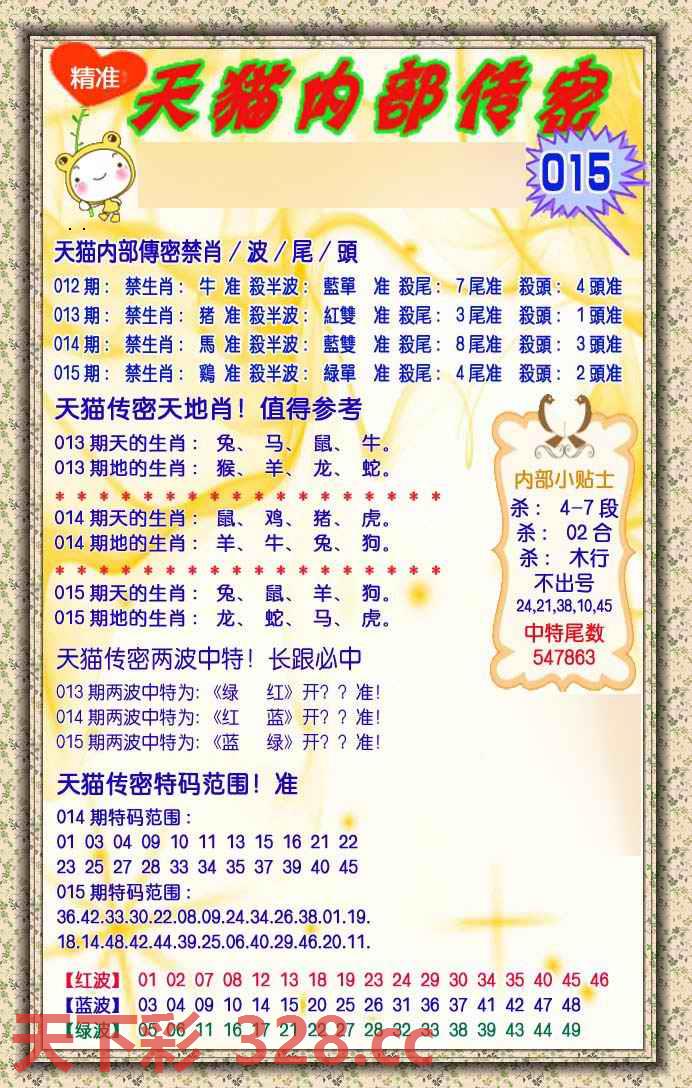 精准
天猫内部传密
015
天猫内部傳密禁肖/波/尾/頭
012期: 禁生肖: 牛 准 殺半波: 藍單 准 殺尾: 7尾准 殺頭: 4頭准
013期: 禁生肖: 猪 准 殺半波: 紅雙 准 殺尾: 3尾准 殺頭: 1頭准
014期: 禁生肖: 馬 准 殺半波: 藍雙 准 殺尾: 8尾准 殺頭: 3頭准
015期: 禁生肖: 鷄 准 殺半波: 緑單 准 殺尾: 4尾准 殺頭: 2頭准
天猫传密天地肖! 值得参考
013期天的生肖: 兔、 马、 鼠、 牛。
013期地的生肖: 猴、 羊、 龙、 蛇。
* * * * * * * * * * * * * * * * *
014期天的生肖: 鼠、 鸡、 猪、 虎。
014期地的生肖: 羊、 牛、 兔、 狗。
* * * * * * * * * * * * * * * * *
015期天的生肖: 兔、 鼠、 羊、 狗。
015期地的生肖: 龙、 蛇、 马、 虎。
内部小贴士
杀: 4-7段
杀: 02合
杀: 木行
不出号
24,21,38,10,45
中特尾数
547863
天猫传密两波中特! 长跟必中
013期两波中特为:《绿 红》开? ? 准!
014期两波中特为:《红 蓝》开? ? 准!
015期两波中特为:《蓝 绿》开? ? 准!
天猫传密特码范围! 准
014期特码范围:
01 03 04 09 10 11 13 15 16 21 22
23 25 27 28 33 34 35 37 39 40 45
015期特码范围:
36.42.33.30.22.08.09.24.34.26.38.01.19.
18.14.48.42.44.39.25.06.40.29.46.20.11.
【红波】 01 02 07 08 12 13 18 19 23 24 29 30 34 35 40 45 46
【蓝波】 03 04 09 10 14 15 20 25 26 31 36 37 41 42 47 48
【绿波】 05 06 11 16 17 21 22 27 28 32 33 38 39 43 44 49
天下彩 328.cc